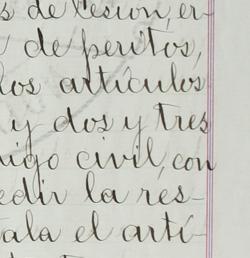 s de lesion, er-
de peritos,
los artículos
y dos y tres
digo civil, con
edir la res-
ala el artí-